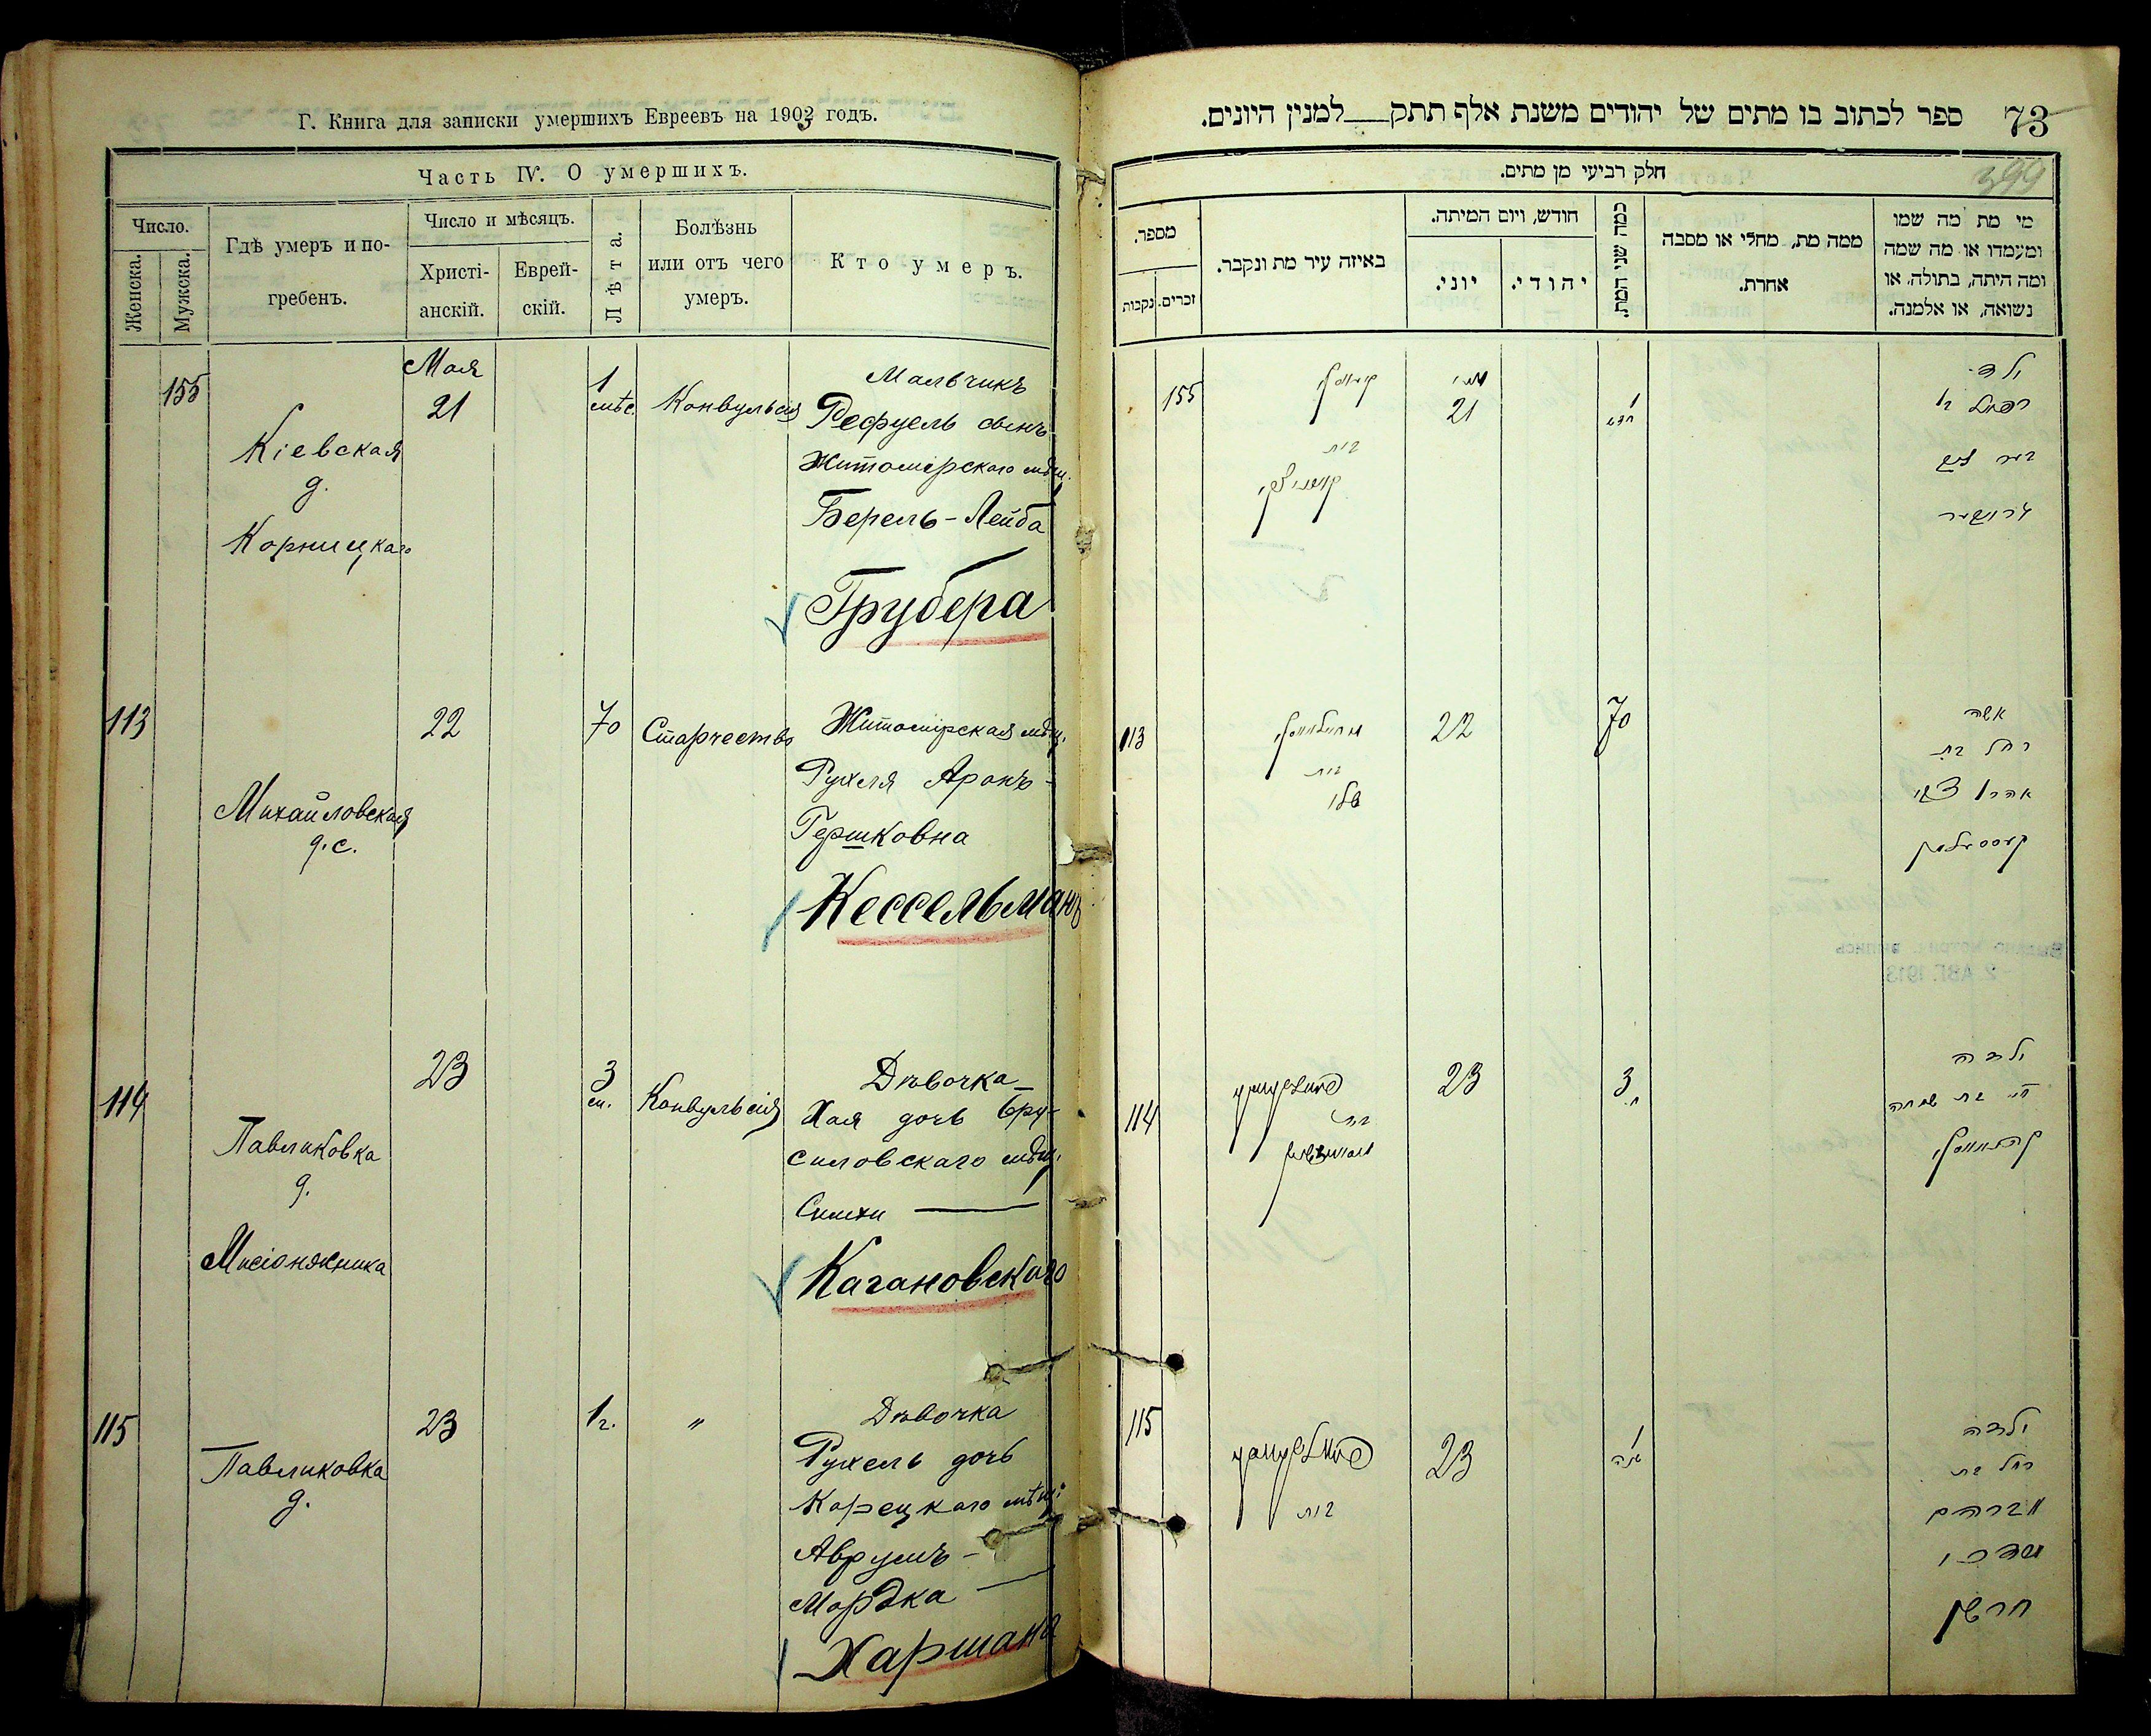 Г. Книга для записки умершихъ Евреевъ на 1903 годъ.
Часть IV. О умершихъ.
Число.
Женска.
Мужска.
Гдѣ умеръ и по-
гребенъ.
Число и мѣсяцъ.
Христі-
анскій.
Еврей-
скій.
Лѣта.
Болѣзнь
или отъ чего
умеръ.
Кто умеръ.
155
Кіевская
д.
Корницкаго
Мая
21
1
мѣс.
Конвульсія
Мальчикъ
Рефуель сынъ
Житомірскаго мѣщ.
Берель-Лейба
Грубера
113
Михайловская
д. с.
22
70
Старчество
Житомірская мѣщ.
Рухля Аронъ-
Гершковна
Кессельманъ
114
Павликовка
д.
23
3
м.
Конвульсія
Дѣвочка
Хая дочь Бру-
силовскаго мѣщ.
Симхи
Кагановскаго
115
Павликовка
д.
23
1 г.
"
Дѣвочка
Рухель дочь
Корецкаго мѣщ.
Аврумъ-
Мордка
Харшана
ספר לכתוב בו מתים של יהודים משנת אלף תתק למנין היונים.
73
חלק רביעי מן מתים.
399
מספר.
זכרים.
נקבות
באיזה עיר מת ונקבר.
חודש, ויום המיתה.
יוני.
יהודי.
כמה שני המת.
ממה מת, מחלי או מסבה
אחרת.
מי מת מה שמו
ומעמדו או מה שמה
ומה היתה, בתולה, או
נשואה, או אלמנה.
155
בית
מאי
21
1
חדש
ילד
רפאל ב'
113
בית
22
70
אשה
רחל בת
אהרן צבי
קעססעלמאן
114
בית
23
3
ח.
ילדה
חי' בת שמחה
115
בית
23
1
שנה
ילדה
רחל בת
אברהם
מרדכי
חרשן